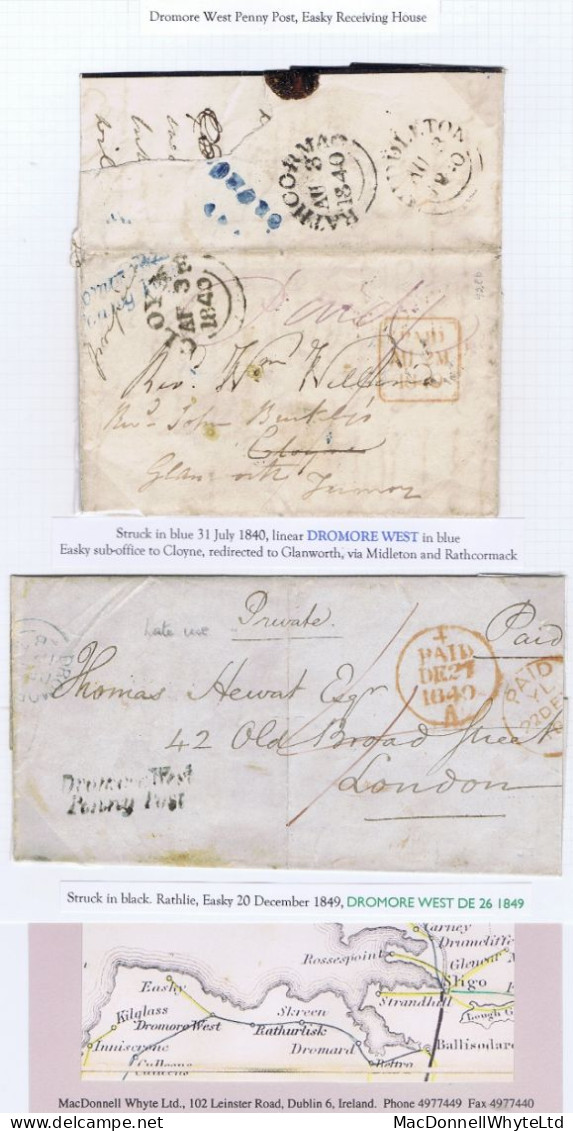 Dromore West Penny Post, Easky Receiving House
RATHCORMAC
AU 3
1840
AU 3
1840
PAID
Revd. Wm.
Revd. John
Cloyne
Glanworth
Struck in blue 31 July 1840, linear DROMORE WEST in blue
Easky sub-office to Cloyne, redirected to Glanworth, via Midleton and Rathcormack
late use
Private.
Paid
PAID
DE 27
1849
A
PAID
22DE
Thomas Hewat Esqr
42 Old Broad Street
London
Dromore West
Penny Post
Struck in black. Rathlie, Easky 20 December 1849, DROMORE WEST DE 26 1849
Carney
Drumcliffe
Rossespoint
Glencar
Sligo
Easky
Strandhill
Lough G
Kilglass
Skreen
Dromore West
Rathurlisk
Inniscrone
Dromard
Ballisodare
Beltra
MacDonnell Whyte Ltd., 102 Leinster Road, Dublin 6, Ireland. Phone 4977449 Fax 4977440
www.MacDonnellWhyte.com